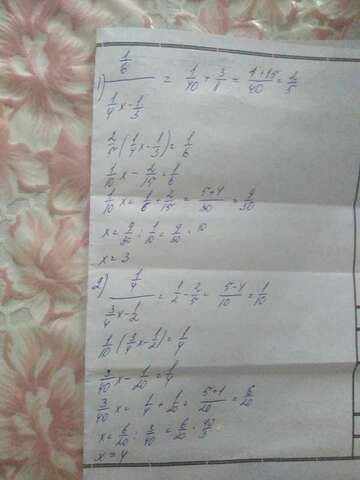 1) (1/6)/(1/4 x - 1/3) = 1/40 + 3/8 = (1+15)/40 = 2/5
2/5 (1/4 x - 1/3) = 1/6
1/10 x - 2/15 = 1/6
1/10 x = 1/6 + 2/15 = (5+4)/30 = 9/30
x = 9/30 : 1/10 = 9/30 · 10
x = 3
2) (1/4)/(3/4 x - 1/2) = 1/2 - 2/5 = (5-4)/10 = 1/10
1/10 (3/4 x - 1/2) = 1/4
3/40 x - 1/20 = 1/4
3/40 x = 1/4 + 1/20 = (5+1)/20 = 6/20
x = 6/20 : 3/40 = 6/20 · 40/3
x = 4